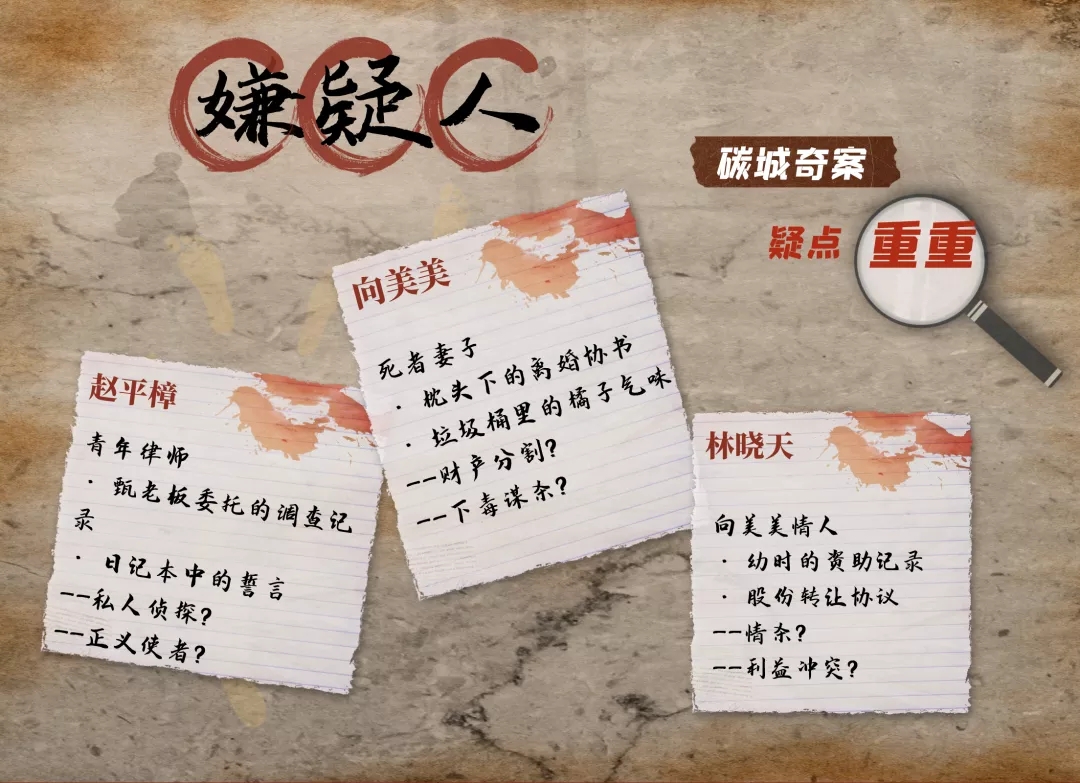 嫌疑人
碳城奇案
疑点 重重
向美美
死者妻子
· 枕头下的离婚协书
· 垃圾桶里的橘子气味
--财产分割?
--下毒谋杀?
赵平樟
青年律师
· 甄老板委托的调查记
录
· 日记本中的誓言
--私人侦探?
--正义使者?
林晓天
向美美情人
· 幼时的资助记录
· 股份转让协议
--情杀?
--利益冲突?